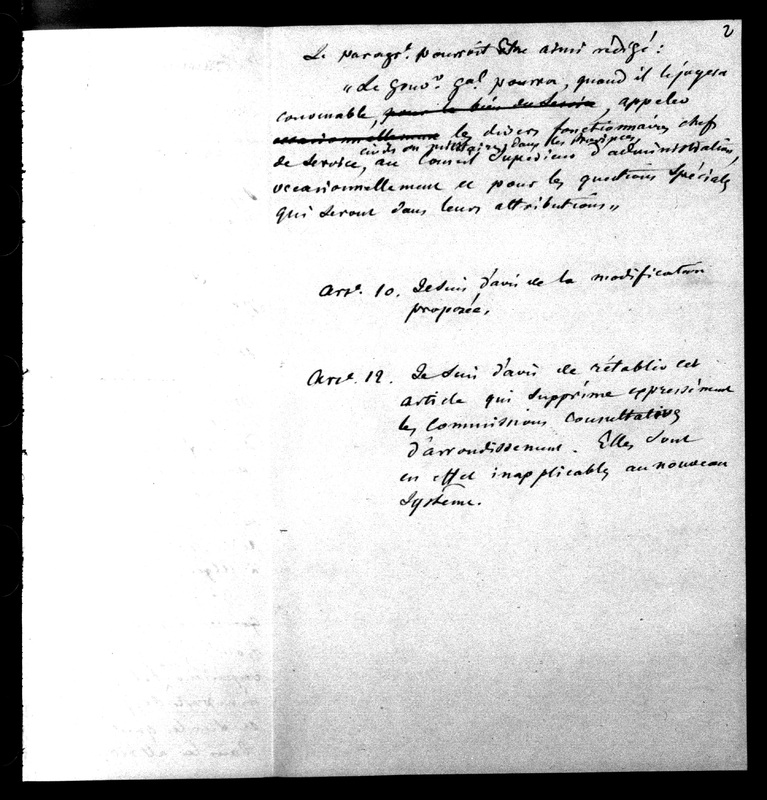 2
Le paragr. pourrait être ainsi rédigé :
"Le Gouv.r gal. pourra, quand il le jugera
convenable, pour le bien du Service, appeler
occasionnellement les divers fonctionnaires chefs
civils ou militaires, dans les
de Service, au Conseil Supérieur d'administration,
occasionnellement et pour les questions spéciales
qui seront dans leurs attributions"
Art. 10. Je suis d'avis de la modification
proposée.
Art. 12. Je suis d'avis de rétablir cet
article qui supprime expressément
les Commissions Consultatives
d'arrondissement. Elles sont
en effet inapplicables au nouveau
Système.